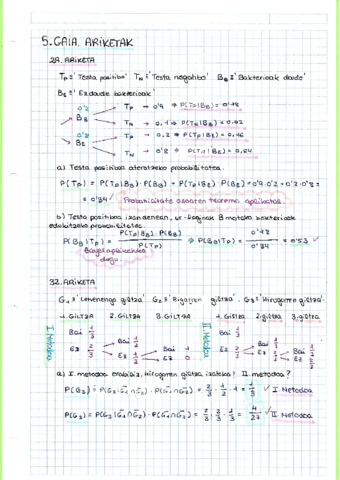 5.GAIA. ARIKETAK
29. ARIKETA
TP = 'Testa positiboa' TN = 'Testa negatiboa' BB = 'Bakterioak daude'
BE = 'Ez daude bakterioak'
0'2 BB TP → 0'9 ⇒ P(TP|BB) = 0'18
TN → 0,1 ⇒ P(TN|BB) = 0,02
0'8 BE TP → 0,2 ⇒ P(TP|BE) = 0,16
TN → 0'8 ⇒ P(TN|BE) = 0,64
a) Testa positiboa ateratzeko probabilitatea.
P(TP) = P(TP|BB)·P(BB) + P(TP|BE)·P(BE) = 0'9·0'2 + 0'2·0'8 =
= 0'34 Probabilitate osoaren teorema aplikatuz
b) Testa positiboa izan zenean, ur-laginak B motako bakterioak
edukitzeko probabilitatea.
P(BB|TP) = P(TP|BB)·P(BB) / P(TP) ⇒ P(BB|TP) = 0'18 / 0'34 = 0'53 ✓
Bayes aplikatuko dugu
32. ARIKETA
G1 = 'Lehenengo giltza' G2 = 'Bigarren giltza' G3 = 'Hirugarren giltza'
1. GILTZA 2. GILTZA 3. GILTZA 1. Giltza 2. giltza 3. giltza
I. Metodoa Bai 1/3 Ez 2/3 Bai 1/2 Ez 1/2 Bai 1 Ez 0
II. Metodoa Bai 1/3 Ez 2/3 Bai 1/3 Ez 2/3 Bai 1/3 Ez 2/3
a) I. metodoa erabiliz, hirugarren giltza izateko? II. metodoa?
P(G3) = P(G3|G1∩G2)·P(G1∩G2) = 2/3 · 1/2 · 1 = 1/3 ✓ I Metodoa
P(G3) = P(G3|G1∩G2)·P(G1∩G2) = 2/3 · 2/3 · 1/3 = 4/27 ✓ II Metodoa